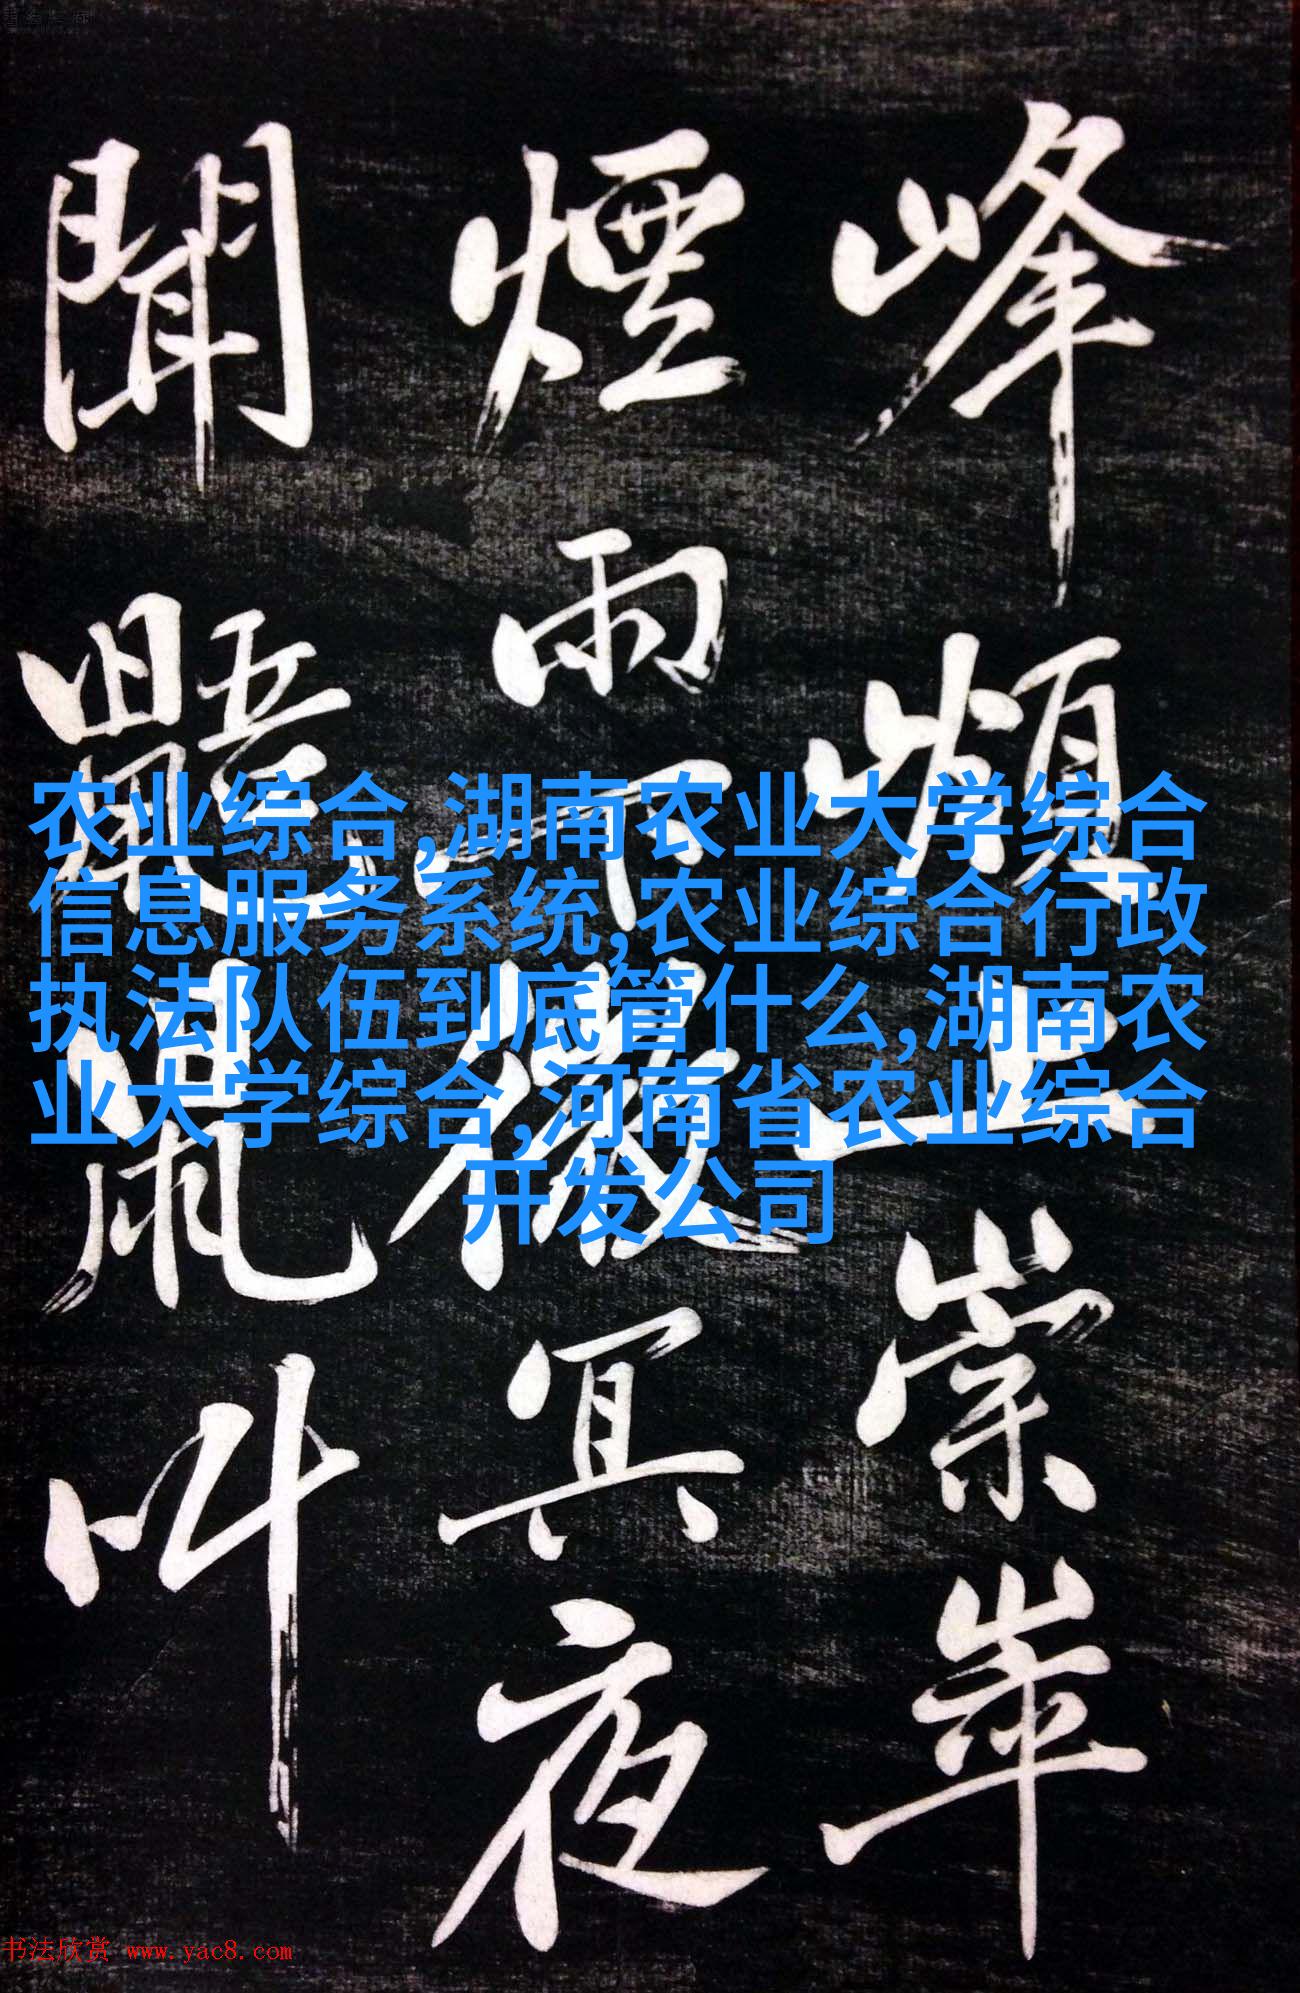 峰上崇崒
煙雨下微冥夜
聞鼯鼠叫
农业综合,湖南农业大学综合
信息服务系统,农业综合行政
执法队伍到底管什么,湖南农
业大学综合,河南省农业综合
开发公司
书法欣赏 www.yac8.com